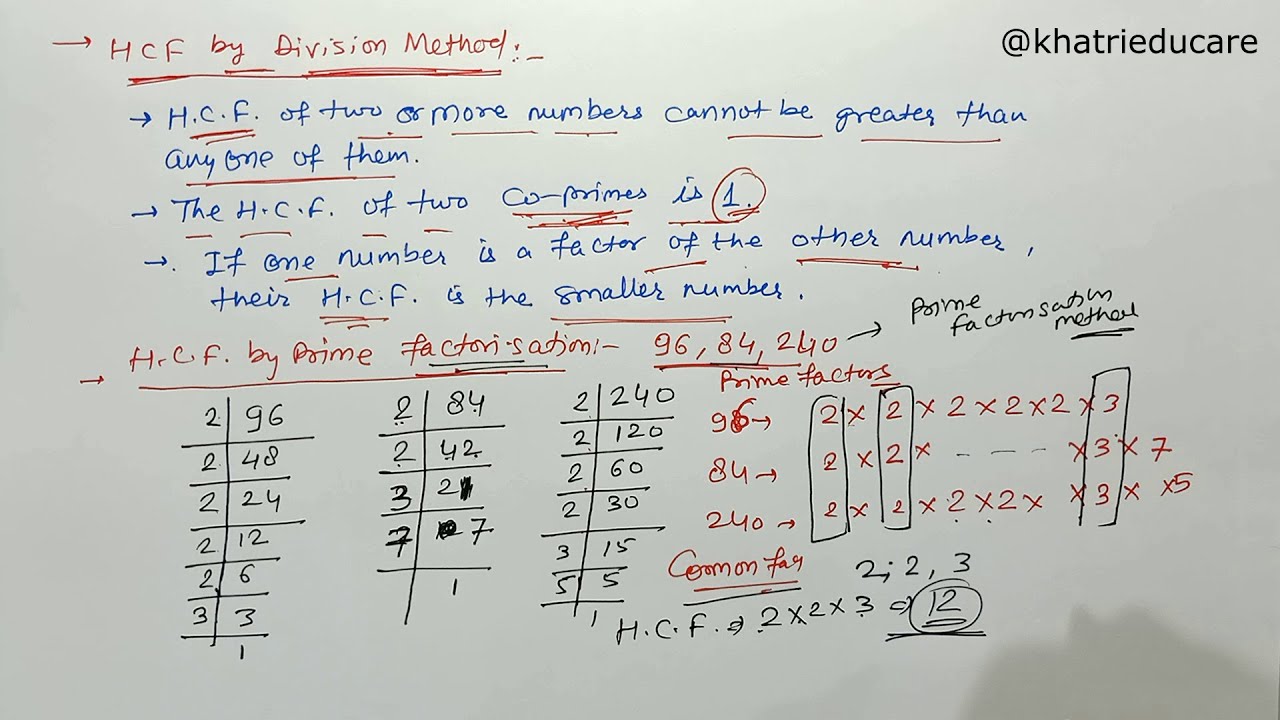 @khatrieducare
→ HCF by Division Method:-
→ H.C.F. of two or more numbers cannot be greater than
any one of them.
→ The H.C.F. of two Co-primes is 1.
→. If one number is a factor of the other number,
their H.C.F. is the smaller number.
→ H.C.F. by Prime factorisation:- 96, 84, 240 → Prime
factorisation
method
2 | 96
2 | 48
2 | 24
2 | 12
2 | 6
3 | 3
1
2 | 84
2 | 42
3 | 21
7 | 7
1
2 | 240
2 | 120
2 | 60
2 | 30
3 | 15
5 | 5
1
Prime factors
96 → 2 × 2 × 2 × 2 × 2 × 3
84 → 2 × 2 × - - - - × 3 × 7
240 → 2 × 2 × 2 × 2 × × 3 × ×5
Common fac 2, 2, 3
H.C.F. ⇒ 2 × 2 × 3 ⇒ 12